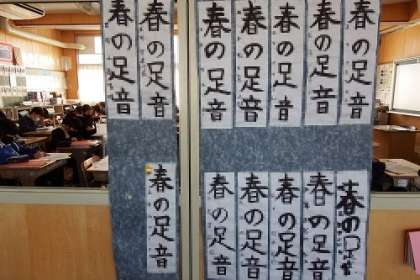 春の足音
春の足音
春の足音
春の足音
春の足音
春の足音
春の足音
春の足音
春の足音
春の足音
春の足音
春の足音
春の足